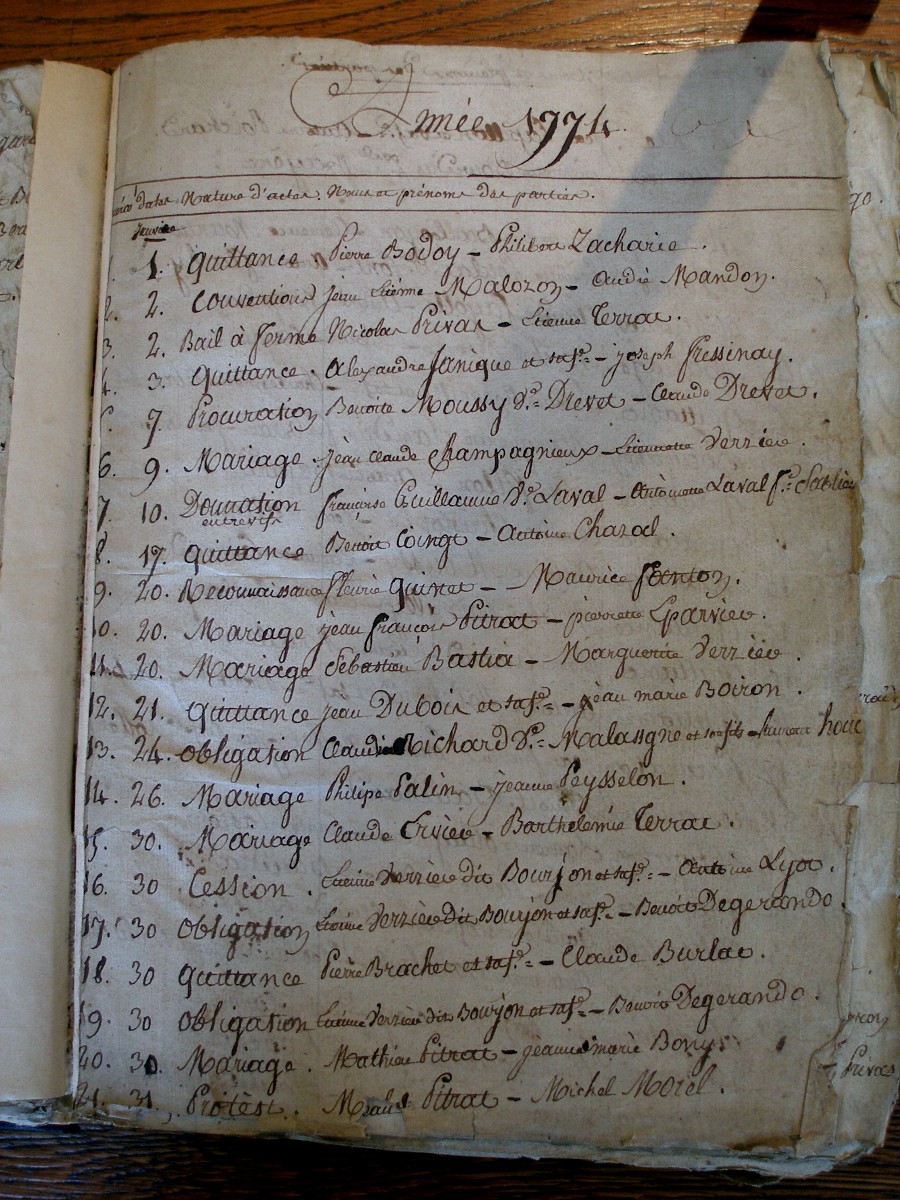 Année 1774
dates Nature d'actes. Noms et prénoms des parties.
Janvier
1. Quittance Pierre Bodoy – Philibert Zacharie.
2. 2. Conventions jean Etiénne Malozon – André Mandon.
3. 2. Bail à ferme Nicolas Privas – Etienne Terrat.
4. 3. Quittance. Alexandre Janique et sa fe. – joseph Fressinay.
7 Procuration Benoite Moussy Ve. Drevet – Claude Drevet.
6. 9. Mariage jean Claude Champagnieux – Etiennette Verzier.
7 10. Donnation françoise Guillaume Ve. Laval – Antoinette Laval fe.
entrevifs
8. 17. Quittance Benoit Coingt – Antoine Chazal.
9. 20. Reconnaissance fleurie Quinet – Maurice
0. 20. Mariage jean françois Pitrat – pierrette Eparvier.
11. 20. Mariage Sébastien Bastia – Marguerite Verzier.
12. 21. Quittance jean Dubois et sa fe. – jean marie Boiron.
13. 24. Obligation Claudine Richard Ve. Malassgne et son fils –
14. 26. Mariage Philipe Palin – jeanne Peysselon.
15. 30. Mariage Claude Ervier – Barthelémie Terrat.
16. 30 Cession. Etienne Verzière dit Bourjon et sa fe. – Antoine Lyot.
17. 30 Obligation Etienne Verzière dit Bourjon et sa fe. – Benoit Degerando.
18. 30 Quittance Pierre Brachet et sa fe. – Claude Burlat.
19. 30 Obligation Etiénne Verzière dit Bourjon et sa fe. – Benoit Degerando.
20. 30. Mariage. Mathieu Pitrat – jeanne marie Bony.
21. 31. Protèst. Pitrat – Michel Morel.
Privas